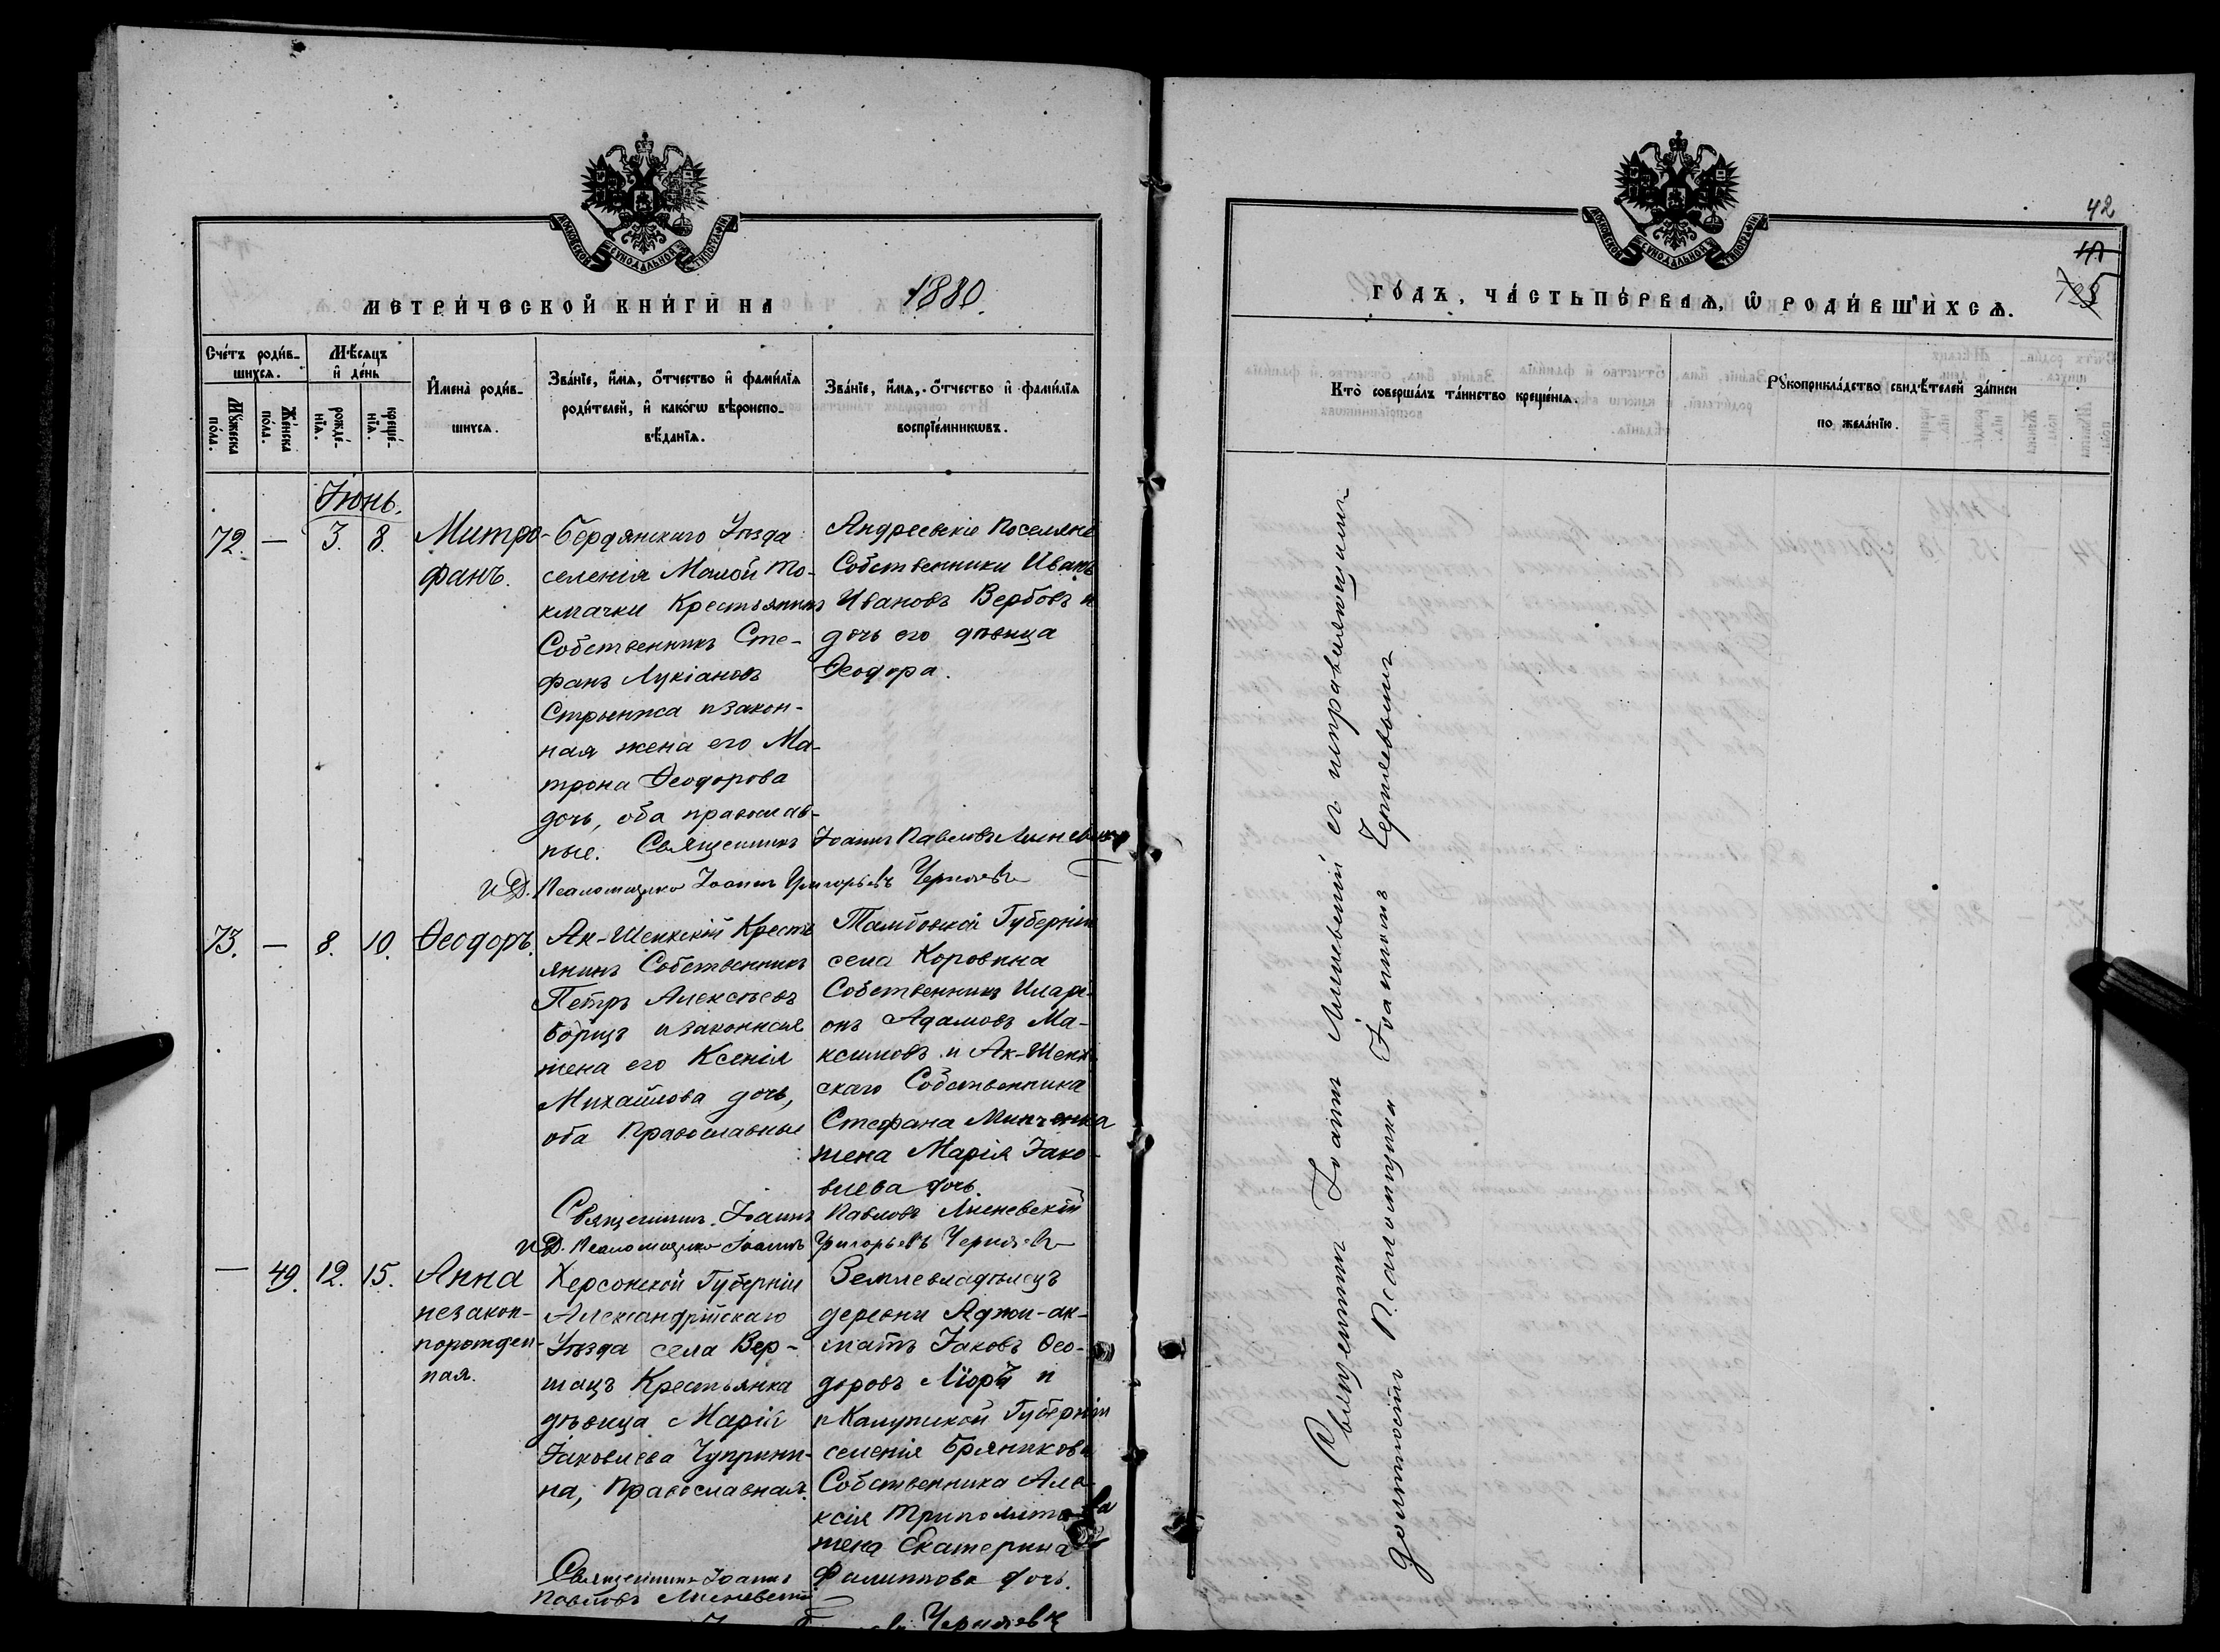 МОСКОВСКОЙ СѴНОДАЛЬНОЙ ТИПОГРАФІИ
МЕТРИ́ЧЕСКОЙ КНИ́ГИ НА 1880.
Сче́тъ роди́в-
шихсѧ.
Мѣ́сѧцъ
и҆ де́нь
Мꙋ́жеска
по́ла.
Же́нска
по́ла.
рожде́-
нїѧ.
креще́-
нїѧ.
И҆мена̀ роди́в-
шихсѧ.
Зва́нїе, и҆́мѧ, ѻ҆́тчество и҆ фами́лїѧ
роди́телей, и҆ како́гѡ вѣроиспо-
вѣ́данїѧ.
Зва́нїе, и҆́мѧ, ѻ҆́тчество и҆ фами́лїѧ
воспрїе́мникѡвъ.
Іюнь.
72. — 3. 8.
Митро-
фанъ.
Бердянскаго Уѣзда
селенія Малой То-
кмачки Крестьянинъ
Собственникъ Сте-
фанъ Лукіановъ
и закон-
ная жена его Ма-
трона Ѳеодорова
дочь, оба православ-
ные.
Андреевскіе Поселяне
Собственники Иванъ
Ивановъ Вербовъ и
дочь его дѣвица
Ѳеодора.
Священникъ Іоаннъ Павловъ Линевскій
И. Д. Псаломщика Іоаннъ Григорьевъ Черняевъ
73. — 8. 10.
Ѳеодоръ.
Ак-Шеихскій Кресть
янинъ Собственникъ
Петръ Алексѣевъ
Борищъ и законная
жена его Ксенія
Михайлова дочь,
оба Православные
Тамбовской Губерніи
села Коровина
Собственникъ Илари-
онъ Адамовъ Ма-
ксимовъ и Ак-Шеих-
скаго Собственника
Стефана Минченка
жена Марія Іако-
влева дочь.
Священникъ Іоаннъ Павловъ Линевскій
И. Д. Псаломщика Іоаннъ Григорьевъ Черняевъ
— 49. 12. 15.
Анна
незакон-
норожден-
ная.
Херсонской Губерніи
Александрійскаго
Уѣзда села Вер-
шацъ Крестьянка
дѣвица Марія
Іаковлева Чуприни-
на, Православная.
Землевладѣлецъ
деревни Аджи-ак-
матъ Іаковъ Ѳео-
доровъ и
и Калужской Губерніи
селенія Брянкова
Собственника Але-
ксія Триполитова
жена Екатерина
Филиппова дочь.
Священникъ Іоаннъ
Павловъ Линевскій
Черняевъ
42
ГО́ДЪ, ЧА́СТЬ ПЕ́РВАѦ, Ѡ҆ РОДИ́ВШИХСѦ.
Кто̀ соверша́лъ та́инство креще́нїѧ.
Рꙋкоприкла́дство свидѣ́телей за́писи
по жела́нїю.
Священникъ Іоаннъ Линевскій съ исправляющимъ
должность Псаломщика Іоанномъ Черняевымъ